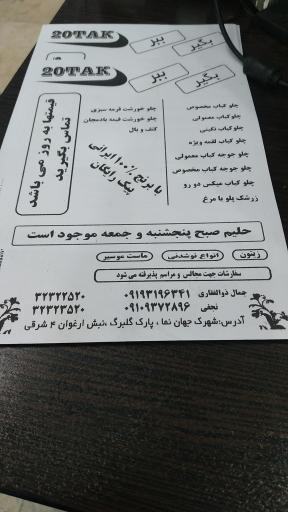 20TAK
بپز
بگیر
20TAK
بپز
بگیر
قیمتها به روز می باشد
تماس بگیرید
چلو کباب مخصوص
چلو کباب معمولی
چلو کباب نگینی
چلو کباب لقمه ویژه
چلو جوجه کباب معمولی
چلو جوجه کباب مخصوص
چلو کباب میکس دو رو
زرشک پلو با مرغ
چلو خورشت قرمه سبزی
چلو خورشت قیمه بادمجان
کتف و بال
با برنج ۱۰۰٪ ایرانی
پیک رایگان
حلیم صبح پنجشنبه و جمعه موجود است
زیتون
انواع نوشدنی
ماست موسیر
سفارشات جهت مجالس و مراسم پذیرفته می شود
جمال ذوالفقاری ۰۹۱۹۳۱۹۶۳۴۱ ۳۲۳۲۲۵۲۰
نجفی ۰۹۱۰۹۳۷۲۸۹۶ ۳۲۳۲۳۵۲۰
آدرس:شهرک جهان نما ، پارک گلبرگ ،نبش ارغوان ۴ شرقی